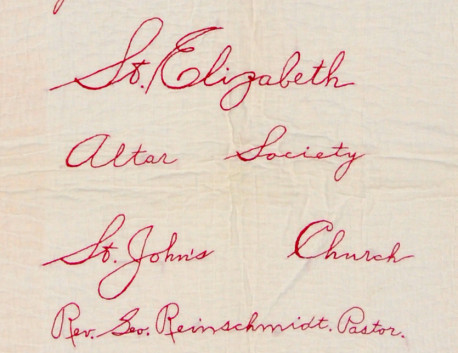 St. Elizabeth
Altar Society
St. John's Church
Rev. Geo. Reinschmidt. Pastor.